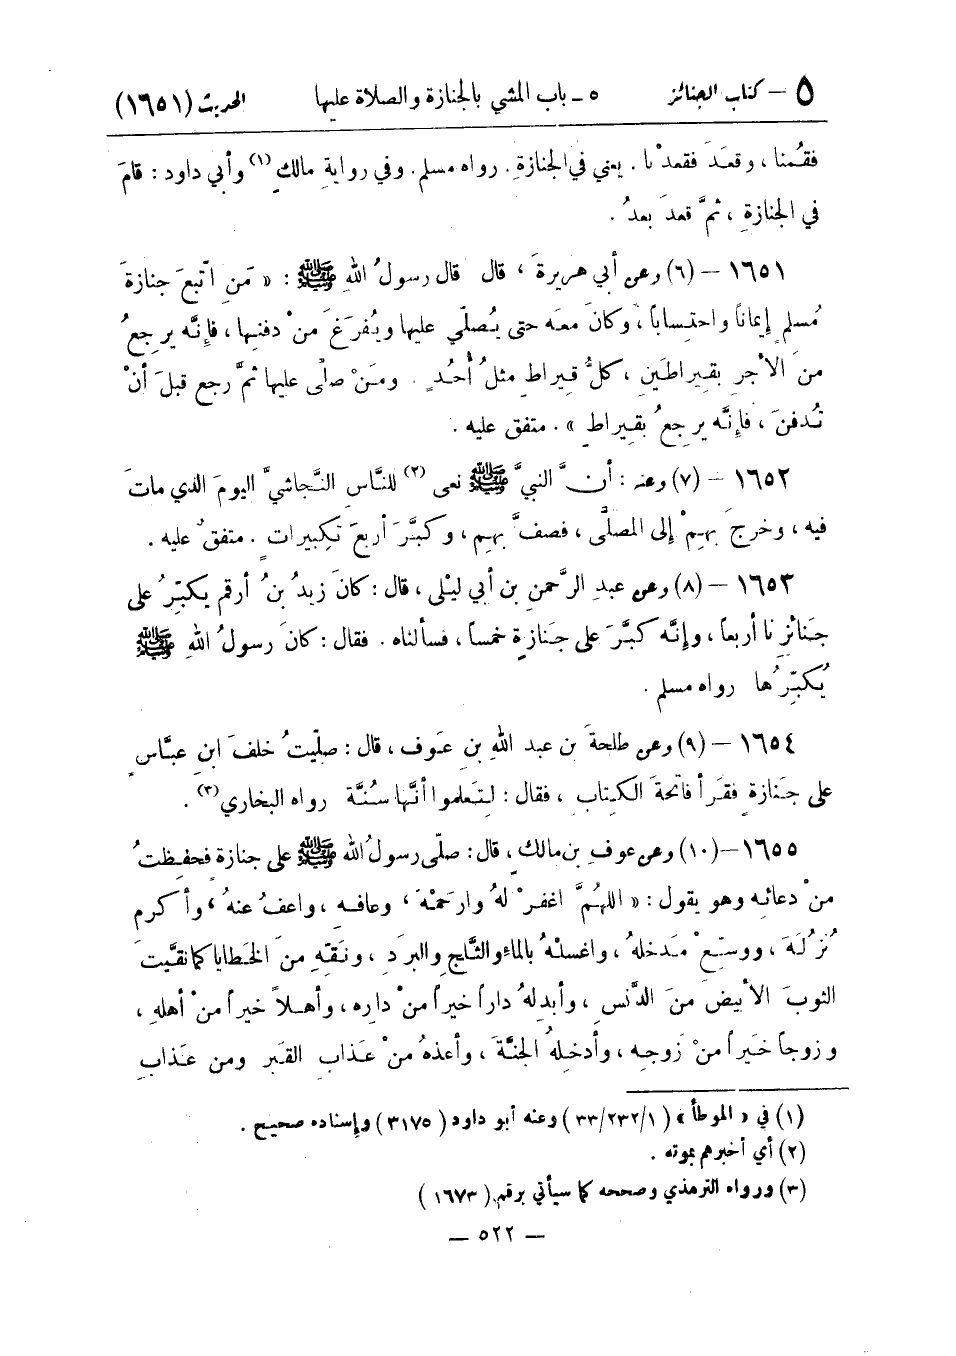 ٥ – كتاب الجنائز ٥ ـ باب المشي بالجنازة والصلاة عليها الحديث (١٦٥١)
فقُمنا ، وقعدَ فقعدْنا . يعني في الجنازةِ . رواه مسلم . وفي روايةِ مالك (١) وأبي داود : قامَ
في الجنازةِ ، ثمَّ قعدَ بعدُ .
١٦٥١ – (٦) وعن أبي هريرةَ ، قال قال رسولُ اللهِ ﷺ : « مَنِ اتّبعَ جنازةَ
مُسلمٍ إيماناً واحتِساباً ، وكانَ معَه حتى يُصلّي عليها ويُفرَغَ منْ دفنِها ، فإنَّه يرجِعُ
منَ الأجرِ بقيراطَينِ ، كلُّ قيراطٍ مثلُ أُحُدٍ . ومَنْ صلّى عليها ثمَّ رجع قبلَ أنْ
تُدفنَ ، فإنَّه يرجِعُ بقيراطٍ » . متفق عليه .
١٦٥٢ – (٧) وعنه : أنَّ النبيَّ ﷺ نعى (٢) للنَّاسِ النَّجاشيَّ اليومَ الذي ماتَ
فيه ، وخرجَ بهِمْ إلى المصلَّى ، فصفَّ بهِم ، وكبَّرَ أربعَ تكبيراتٍ . متفقٌ عليه .
١٦٥٣ – (٨) وعن عبدِ الرَّحمنِ بنِ أبي ليْلى ، قال : كانَ زيدُ بنُ أرقم يكبِّرُ على
جَنائزِنا أربعاً ، وإنَّه كبَّرَ على جَنازةٍ خمساً ، فسألناه . فقال : كانَ رسولُ اللهِ ﷺ
يُكبِّرُها رواه مسلم .
١٦٥٤ – (٩) وعن طلحةَ بنِ عبدِ اللهِ بنِ عَوف ، قال : صلّيتُ خلفَ ابنِ عبَّاسٍ
على جَنازةٍ فقَرأ فاتحةَ الكِتابِ ، فقال : لِتَعلموا أنَّها سُنَّة رواه البخاري (٣) .
١٦٥٥ – (١٠) وعن عوفِ بن مالك ، قال : صلّى رسولُ الله ﷺ على جنازةٍ فحفِظتُ
منْ دعائِه وهو يقول : « اللهُمَّ اغفرْ لهُ وارحَمْهَ ، وعافِهِ ، واعفُ عنهُ ، وأكرِم
نُزُلَهَ ، ووسّعْ مَدخلهُ ، واغسلهُ بالماءِ والثَّلجِ والبرَدِ ، ونَقّهِ منَ الخطايا كما نقَّيتَ
الثوبَ الأبيضَ منَ الدَّنسِ ، وأبدِلهُ داراً خيراً منْ دارِه ، وأهلاً خيراً منْ أهلهِ ،
وزوجاً خَيراً منْ زَوجِه ، وأدخِلهُ الجنَّةَ ، وأعذهُ منْ عَذابِ القَبر ومن عَذابِ
(١) في « الموطأ » (٣٣/٢٣٢/١) وعنه أبو داود (٣١٧٥) وإسناده صحيح .
(٢) أي أخبرهم بموته .
(٣) ورواه الترمذي وصححه كما سيأتي برقم (١٦٧٣)
– ٥٢٢ –